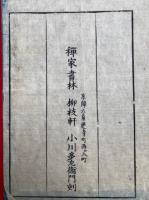 京師六角通御幸町西ヘ入町
禪家書林 柳枝軒 小川多左衛門刻